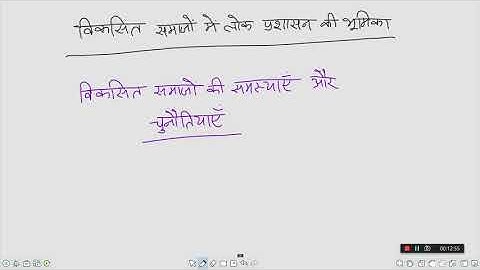 विकसित समाजों मे लोक प्रशासन की भूमिका
विकसित समाजो की समस्याएँ और
चुनौतियाएँ
00:12:55